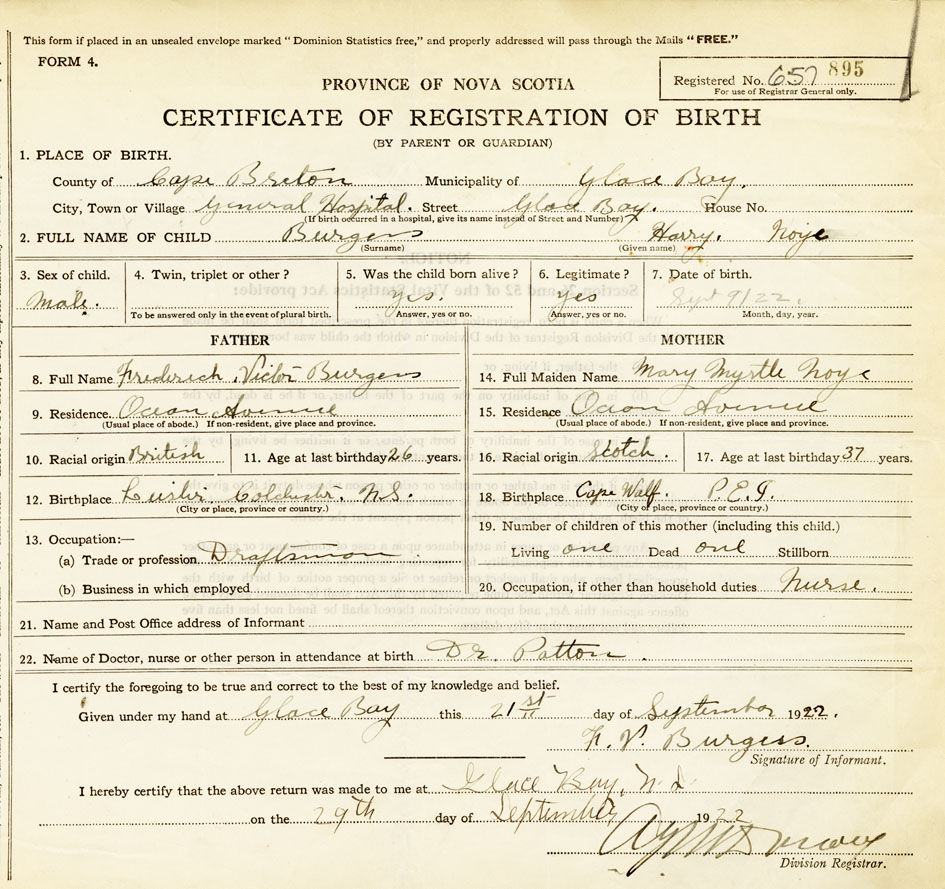 This form if placed in an unsealed envelope marked "Dominion Statistics free," and properly addressed will pass through the Mails "FREE."
FORM 4.
PROVINCE OF NOVA SCOTIA
Registered No. 657 895
For use of Registrar General only.
CERTIFICATE OF REGISTRATION OF BIRTH
(BY PARENT OR GUARDIAN)
1. PLACE OF BIRTH.
County of Cape Breton Municipality of Glace Bay.
City, Town or Village General Hospital. Street Glace Bay. House No.
(If birth occurred in a hospital, give its name instead of Street and Number)
2. FULL NAME OF CHILD Burgess Harry. Noye
(Surname) (Given name)
3. Sex of child. 4. Twin, triplet or other? 5. Was the child born alive? 6. Legitimate? 7. Date of birth.
Male. yes. yes Sept 9/22.
To be answered only in the event of plural birth. Answer, yes or no. Answer, yes or no. Month, day, year.
FATHER MOTHER
8. Full Name Frederick Victor Burgess 14. Full Maiden Name Mary Myrtle Noye
9. Residence. Ocean Avenue 15. Residence Ocean Avenue
(Usual place of abode.) If non-resident, give place and province. (Usual place of abode.) If non-resident, give place and province.
10. Racial origin British 11. Age at last birthday 26 years. 16. Racial origin Scotch. 17. Age at last birthday 37 years.
12. Birthplace Colchester. N.S. 18. Birthplace Cape Wolf. P.E.I.
(City or place, province or country.) (City or place, province or country.)
19. Number of children of this mother (including this child.)
13. Occupation:—
(a) Trade or profession Draftsman. Living one Dead one Stillborn
(b) Business in which employed 20. Occupation, if other than household duties Nurse.
21. Name and Post Office address of Informant
22. Name of Doctor, nurse or other person in attendance at birth Dr. Patton.
I certify the foregoing to be true and correct to the best of my knowledge and belief.
Given under my hand at Glace Bay this 21st day of September 1922.
F. V. Burgess.
Signature of Informant.
I hereby certify that the above return was made to me at Glace Bay, N S
on the 29th day of September 1922
Division Registrar.